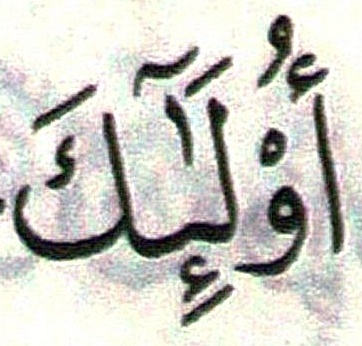 أُوْلَـٰٓئِكَ